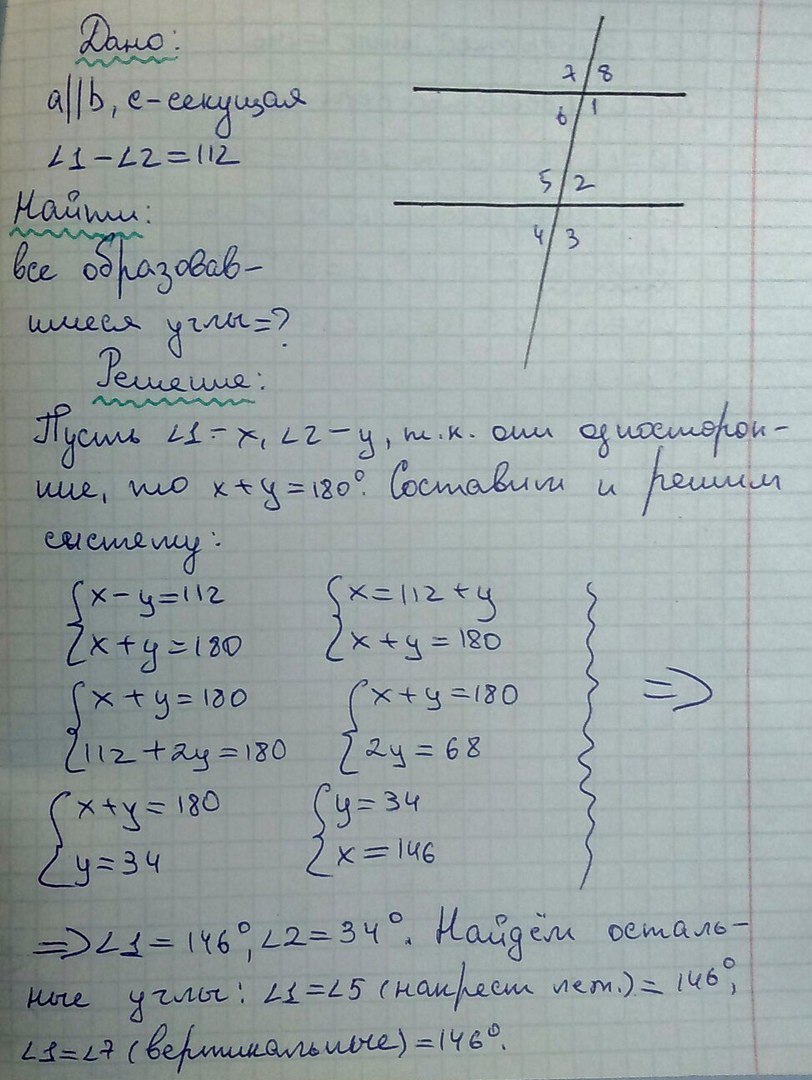 Дано:
a||b, c-секущая
∠1-∠2=112
Найти:
все образовав-
шиеся углы=?
7 8
6 1
5 2
4 3
Решение:
Пусть ∠1-x, ∠2-y, т.к. они односторон-
ние, то x+y=180°. Составим и решим
систему:
{x-y=112 {x=112+y
{x+y=180 {x+y=180
=>
{x+y=180 {x+y=180
{112+2y=180 {2y=68
{x+y=180 {y=34
{y=34 {x=146
=>∠1=146°, ∠2=34°. Найдём осталь-
ные углы: ∠1=∠5 (накрест леж.)=146°,
∠1=∠7 (вертикальные)=146°.